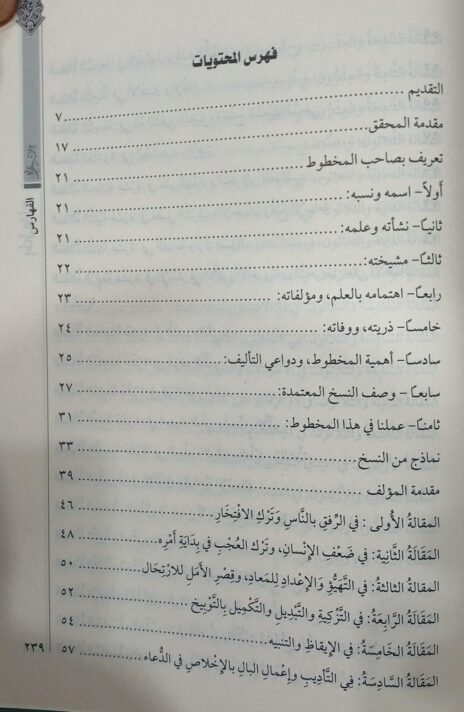 فهرس المحتويات
التقديم ........ ٧
مقدمة المحقق ........ ١٧
تعريف بصاحب المخطوط ........ ٢١
أولاً- اسمه ونسبه: ........ ٢١
ثانيـًا- نشأته وعلمه: ........ ٢١
ثالثـًا- مشيخته: ........ ٢٢
رابعـًا- اهتمامه بالعلم، ومؤلفاته: ........ ٢٣
خامسـًا- ذريته، ووفاته: ........ ٢٤
سادسـًا- أهمية المخطوط، ودواعي التأليف: ........ ٢٥
سابعـًا- وصف النسخ المعتمدة: ........ ٢٧
ثامنـًا- عملنا في هذا المخطوط: ........ ٣١
نماذج من النسخ ........ ٣٣
مقدمة المؤلف ........ ٣٩
المقالةُ الأُولى: في الرِّفقِ بالنَّاسِ وَتَرْكِ الافْتِخَارِ ........ ٤٦
المَقَالَةُ الثَّانِيَة: في ضَعْفِ الإِنْسانِ، وتَرْك العُجْبِ في بِدَايَةِ أَمْرِه ........ ٤٨
المقالة الثالثةُ: في التَّهَيُّؤِ وَالإِعْدادِ لِلمَعادِ، وقِصْرِ الأَمَلِ للارْتِحَال ........ ٥٠
المَقَالَةُ الرَّابِعَةُ: في التَّزْكِيةِ والتَّبْدِيلِ والتَّكْمِيلِ بِالتَّوْبِيخِ ........ ٥٢
المَقَالَةُ الخَامِسَةُ: في الإِيقَاظِ والتنبيه ........ ٥٤
المَقَالَةُ السَّادِسَةُ: فِي التَّأْدِيبِ وإِعْمالِ البالِ بِالإِخْلاصِ في الدُّعاء ........ ٥٧
الفهارس
٢٣٩